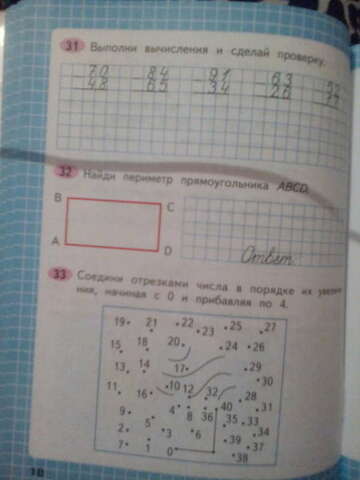 31 Выполни вычисления и сделай проверку.
70 84 91 63 52
48 65 34 26
32 Найди периметр прямоугольника ABCD.
B C
A D
Ответ
33 Соедини отрезками числа в порядке их увеличе-
ния, начиная с 0 и прибавляя по 4.
19 21 22 23 25 27
15 18 20 24 26
13 14 17 29
11 16 10 12 32 28 30
9 4 8 36 40 35 33 31
2 5 3 6 39 34
7 1 0 38 37
10